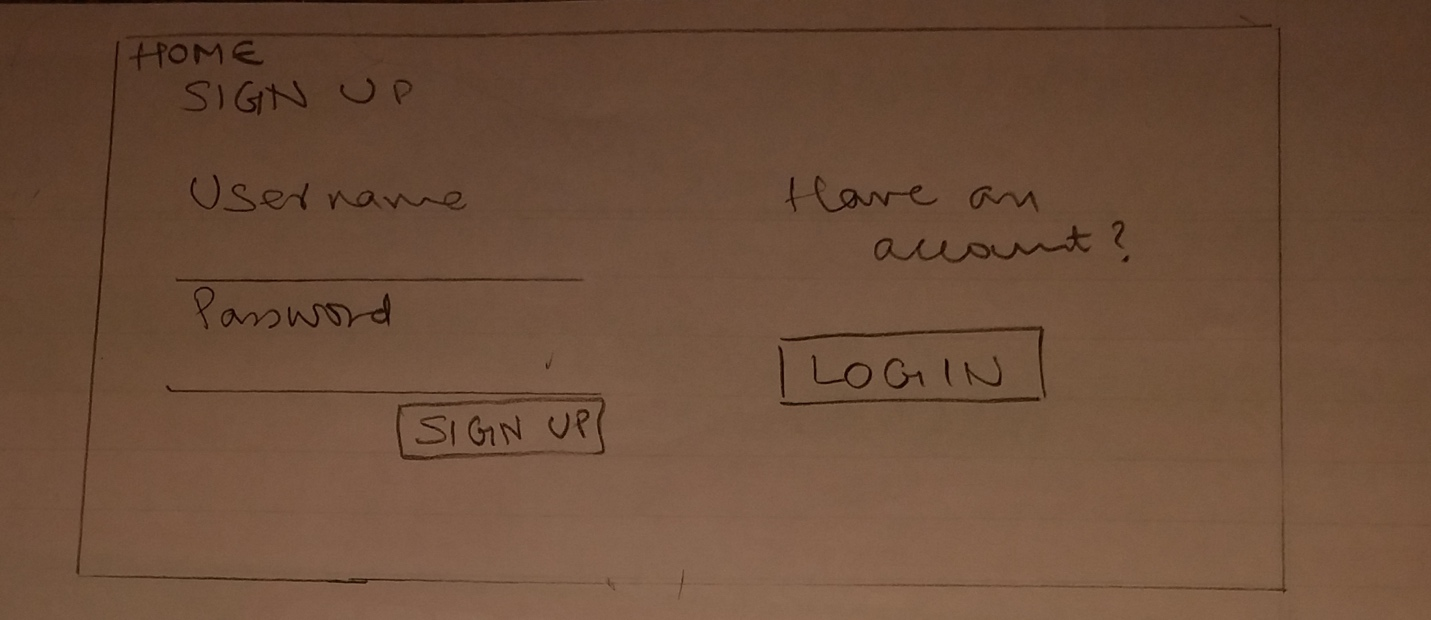 HOME
SIGN UP
Username
Password
SIGN UP
Have an
account?
LOGIN